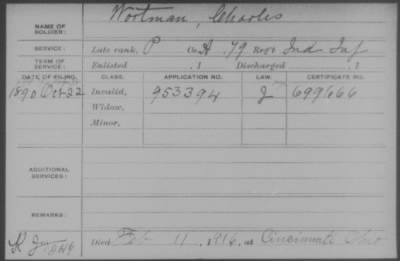 Wortman, Charles
NAME OF SOLDIER:
SERVICE: Late rank, P Co. A, 79 Reg't Ind Inf
TERM OF SERVICE: Enlisted , 1 Discharged , 1
DATE OF FILING. CLASS. APPLICATION NO. LAW. CERTIFICATE NO.
1890 Oct 22 Invalid, 953394 J 699666
Widow,
Minor,
ADDITIONAL SERVICES:
REMARKS:
Died Feb 11, 1916, at Cincinnati Ohio